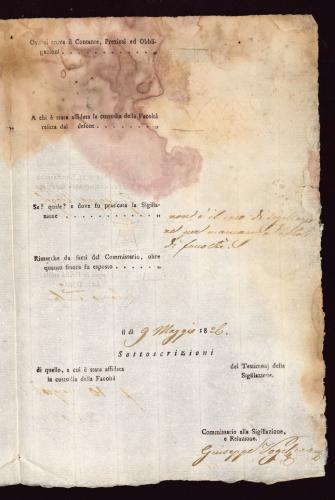 Ove si trova il Contante, Preziosi ed Obbli-
gazioni . . . . . . . . . . . . "
A chi è stata affidata la custodia della Facoltà
relitta dal defont. . . . . . . . . "
Se? quale? e dove fu praticata la Sigilla-
zione . . . . . . . . . . . . . " non è il caso di
per mancanza
di facoltà.
Rimarche da farsi dal Commissario, oltre
quanto finora fu esposto . . . . . . . "
il dì 9 Maggio 1826.
Sottoscrizioni
di quello, a cui è stata affidata
la custodia della Facoltà
dei Testimonj della
Sigillazione.
Commissario alla Sigillazione,
e Relazione.
Giuseppe